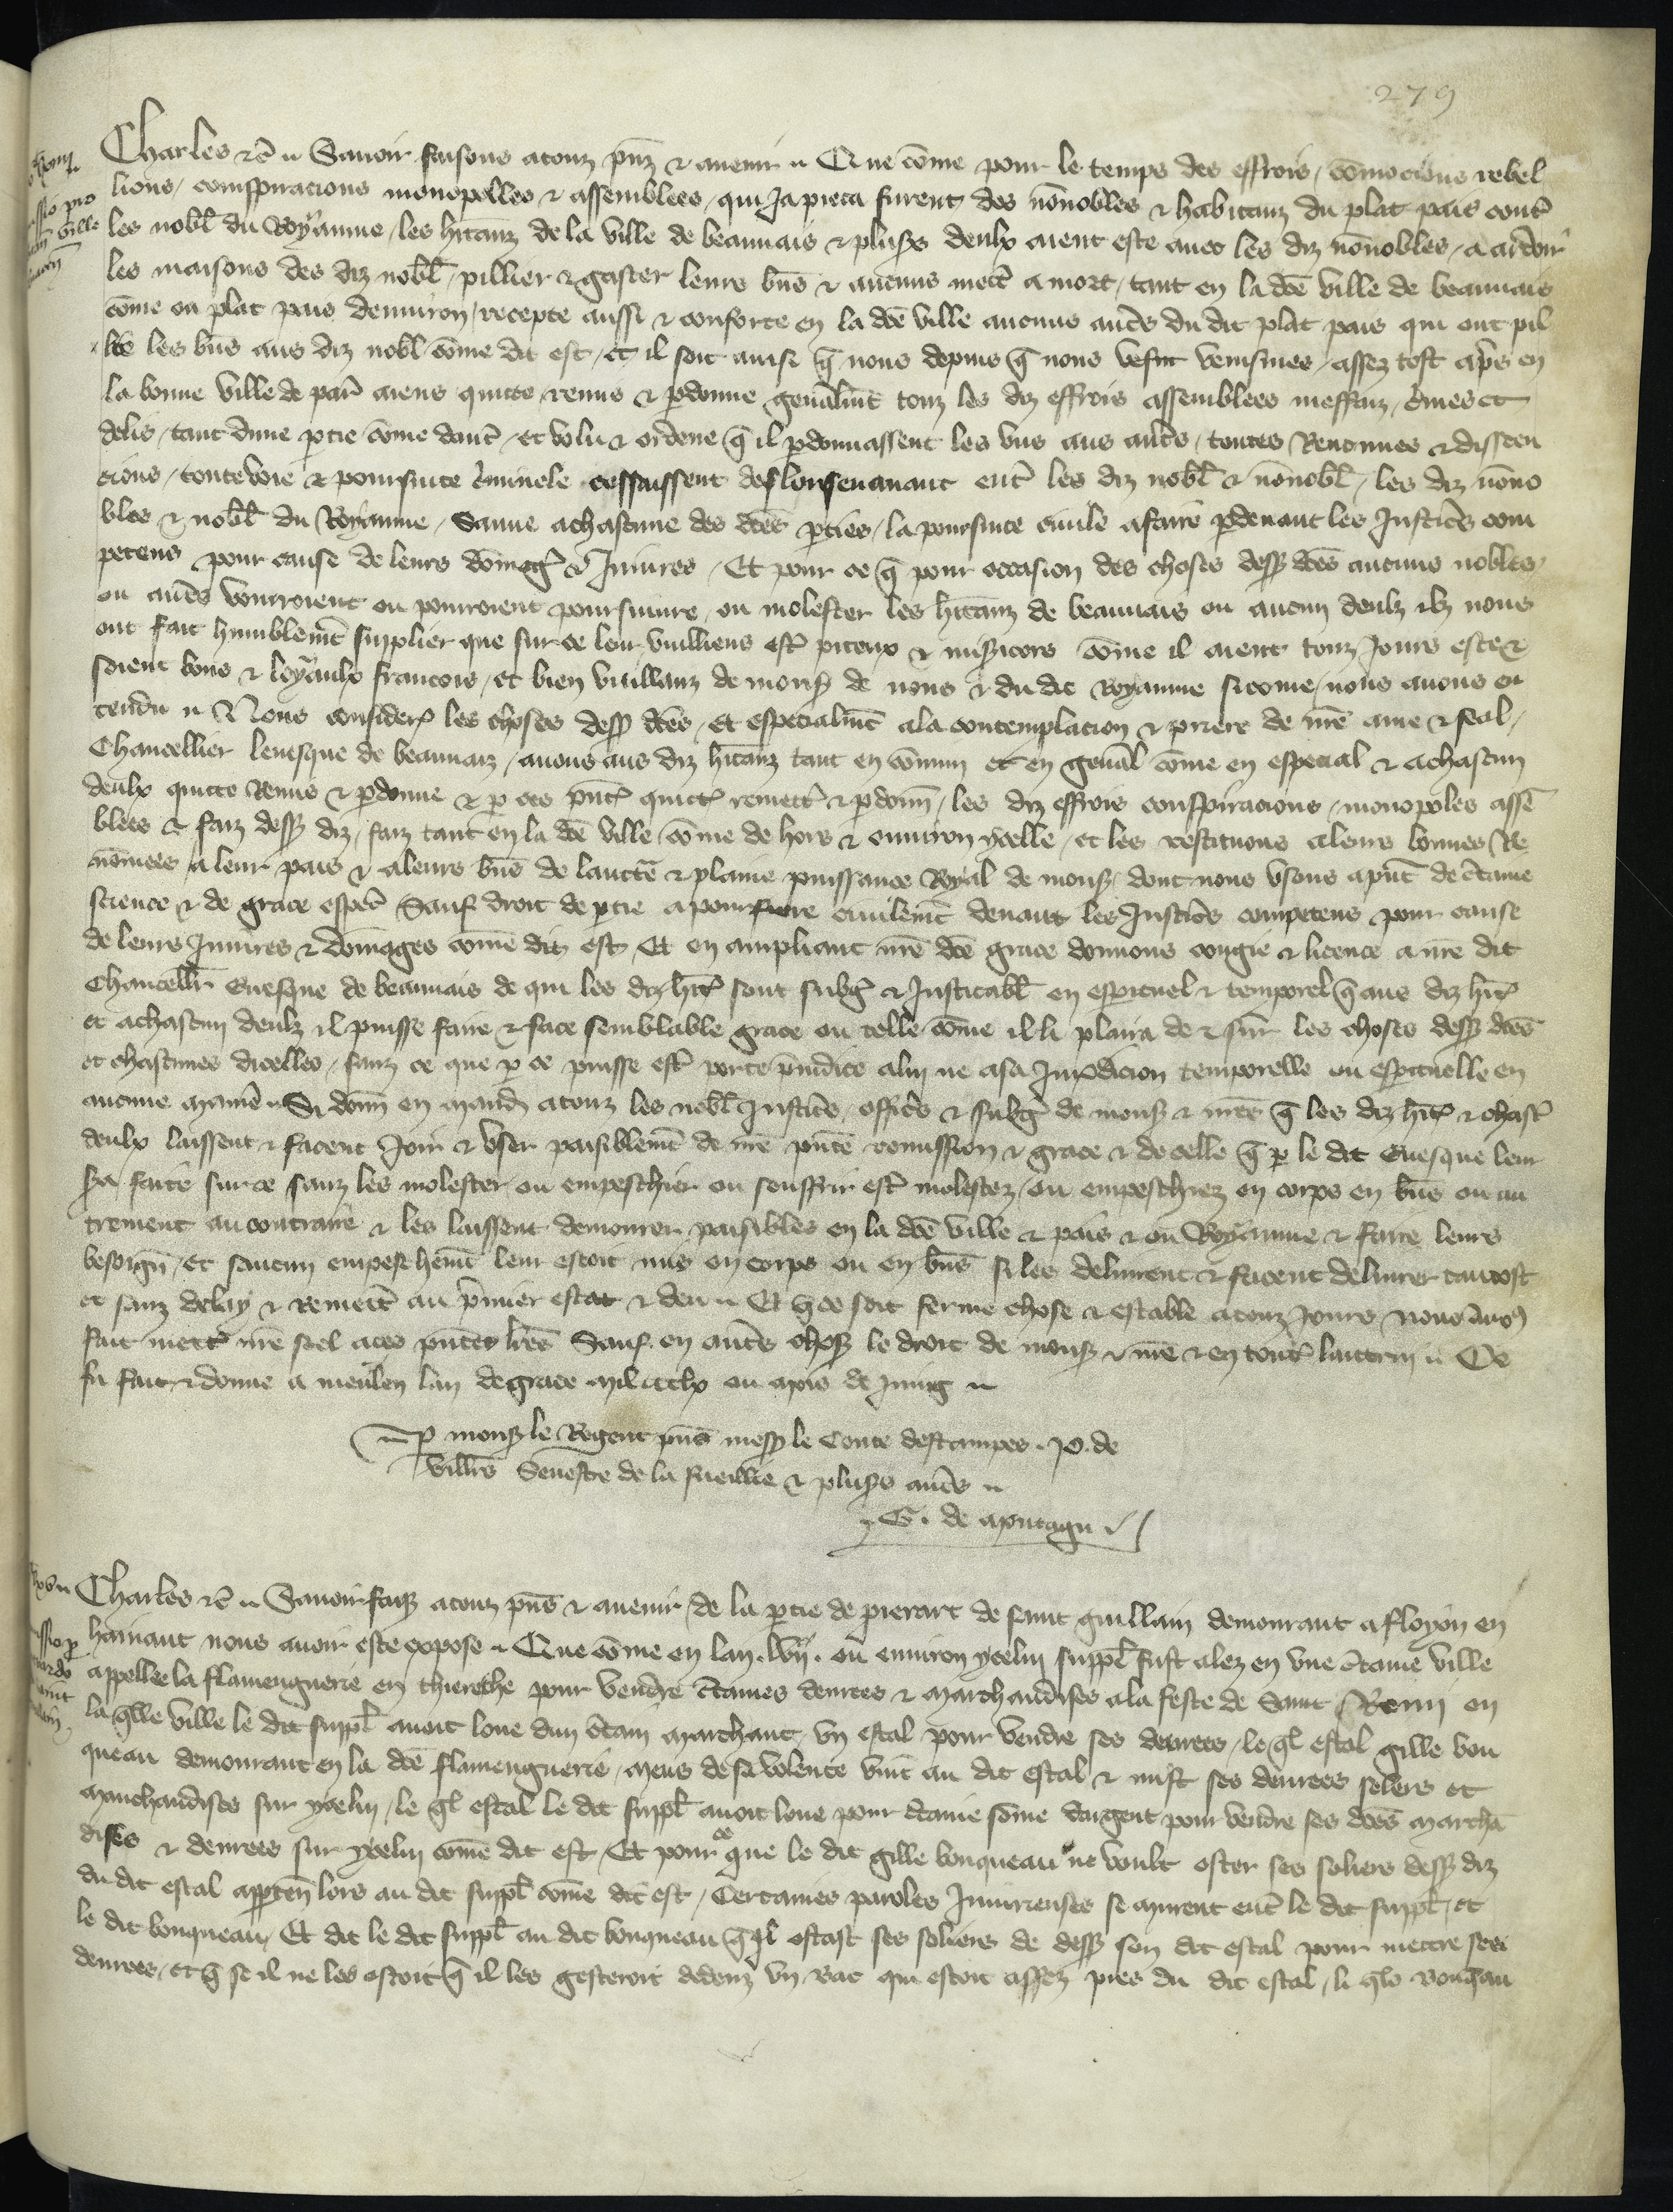 279
Charles etc̄ Sauoir faisons atouz pn̄z & auenir Que cōme pour le temps des effrois, cōmocions rebel
lions, conspiracions monopolles & assemblees, qui Ja pieca furent des nōnobles & habitanz du plat pais cont̄
les nobl̄ du Royaume, les hītanz de la ville de beauuais & plus̄s deulx aient este auec les diz nōnobles, a ardoir
les maisons des diz nobl̄, pillier & gaster leurs bn̄s & aucuns mett̄ a mort, tant en la dc̄e ville de beauuais
cōme ou plat pais denuiron, recepte aussi & conforte en la dc̄e ville aucuns aut̄s du dit plat pais qui ont pil
lie les bn̄s aus diz nobl̄ cōme dit est, et il soit ainsi q̄ nous depuis q̄ nous venismes assez tost ap̄s en
la bonne ville de par̄ aiens quitte remis & p̄donne gen̄alm̄t touz les diz effrois assemblees meffaiz, c̄mes et
delis, tant dune p̄tie cōme daut̄, et volu & ordene q̄ il p̄donnassent les vns aus aut̄s, toutes Rancunes & dissten
cions, toute voie & poursuite c̄minele cessaissent deslorsenauant ent̄ les diz nobl̄ & nōnobl̄, les diz nōno
bles & nobl̄ du Royaume, Sauue achascune des dc̄es p̄ties, la poursuite ciuile afaire p̄deuant les Justic̄s com
petens pour cause de leurs dōmaḡ & Iniures, Et pour ce q̄ pour occasion des choses dess̄ dc̄es aucuns nobles
ou aut̄s vouroient ou pouroient poursuiure, ou molester les hītanz de beauuais ou aucun deulz ilz nous
ont fait humblem̄t supplier que sur ce leur vuilliens est̄ piteux & mis̄icors cōme il aient touz Jours este &
soient bons & loyaulx francois, et bien vuillanz de mons̄ de nous & du dit Royaume sicome nous auons en
tendu Nous consider̄ les choses dess̄ dc̄es, Et especialm̄t ala contemplacion & priere de nr̄e ame & feal,
Chancellier leuesque de beauuaiz, auons aus diz hītanz tant en cōmun et en gen̄al cōme en especial & achascun
deulx quitte Remis & p̄donne & p̄ ces pn̄t̄ quitt̄ remett̄ & p̄donn̄, les diz effrois conspiracions, monopoles assē
blees & faiz dess̄ diz, faiz tant en la dc̄e ville, cōme de hors & enuiron ycelle, et les restituons aleurs bonnes Re
nōmees a leur pais & aleurs bn̄s de lauctē & plaine puissance Royal de mons̄ dont nous vsons apn̄t de c̄taine
science & de grace esp̄c̄ Sauf droit de p̄tie apoursuiure ciuilem̄t deuant les Justic̄s competens pour cause
de leurs Iniures & dōmages cōme dit est, Et en ampliant nr̄e dc̄e grace donnons congie & licence a nr̄e dit
Chancellr̄ Euesque de beauuais de qui les diz hīt̄ sont subḡ & Justicabl̄ en espituel & temporel q̄ aus diz hīt̄
et achascun deulz il puisse faire & face semblable grace ou telle cōme il li plaira de & sur les choses dess̄ dc̄es
et chascunes dicelles, sanz ce que p̄ ce puisse est̄ porte p̄iudice alui ne asa Jur̄dicion temporelle ou espituelle en
aucune maniē Si donn̄ en mand̄ atouz les nobl̄ Justic̄s, offic̄s & subḡ de mons̄ & nr̄es q̄ les diz hīt̄ & chasc̄
deulx laissent & facent Joir & vser paisiblem̄t de nr̄e pn̄te remission & grace & de celle q̄ p̄ le dit Euesque leur
s̄a faite sur ce sanz les molester ou empeschier ou souffrir est̄ molestez, ou empeschiez en corps en bn̄s ou au
trement au contraire & les laissent demourer paisibles en la dc̄e ville & pais & ou Royaume & faire leurs
besoign̄, et saucun empeschem̄t leur estoit mis en corps ou en bn̄s si les deliurent & facent deliurer tantost
et sanz delay & Remett̄ au p̄mier estat & deu Et q̄ ce soit ferme chose & estable atouz Jours nous auōs
fait mett̄ nr̄e seel aces pn̄tes lr̄es Sauf en aut̄s chos̄ le droit de mons̄ & nr̄e & en tout̄ lautrui Ce
fu fait & donne a meulen lan de grace mil ccclx ou mois de Juing
p̄ mons̄ le Regent pn̄s mess̄ le Conte destampes. Jo. de
Villrs̄ Seneste de la fueillie & plus̄s aut̄s
G. de montagu
Charles etc̄ Sauoir fais̄ atouz pn̄s & auenir, de la p̄tie de pierart de saint guillain demourant a floyon en
hainaut nous auoir este expose Que cōme en lan. lvij. ou enuiron ycelui suppl̄ fust alez en vne c̄taine ville
appellee la flamenguerie en thierache pour vendre c̄taines denrees & marchandises ala feste de Saint Remi en
la q̄lle ville le dit suppl̄ auoit loue dun c̄tain marchant, vn estal pour vendre ses denrees, le q̄l estal gille bou
queau demourant en la dc̄e flamenguerie, meus de sa volente vint au dit estal & mist ses denrees solers et
marchandises sur ycelui, le q̄l estal le dit suppl̄ auoit loue pour c̄taine sōme dargent pour vendre ses dc̄es marchā
dises & denrees sur ycelui cōme dit est, Et pour ce que le dit gille bouqueau ne voult oster ses soliers dess̄ diz
du dit estal app̄ten̄ lors au dit suppl̄ cōme dit est, Certaines paroles Iniurieuses se murent ent̄ le dit suppl̄, et
le dit bouqueau, Et dit le dit suppl̄ au dit bouqueau q̄ il ostast ses soliers de dess̄ son dit estal pour mettre ses
denrees, et q̄ se il ne les ostoit q̄ il les gesteroit dedenz vn bac qui estoit assez pres du dit estal, li q̄lx bouq̄au